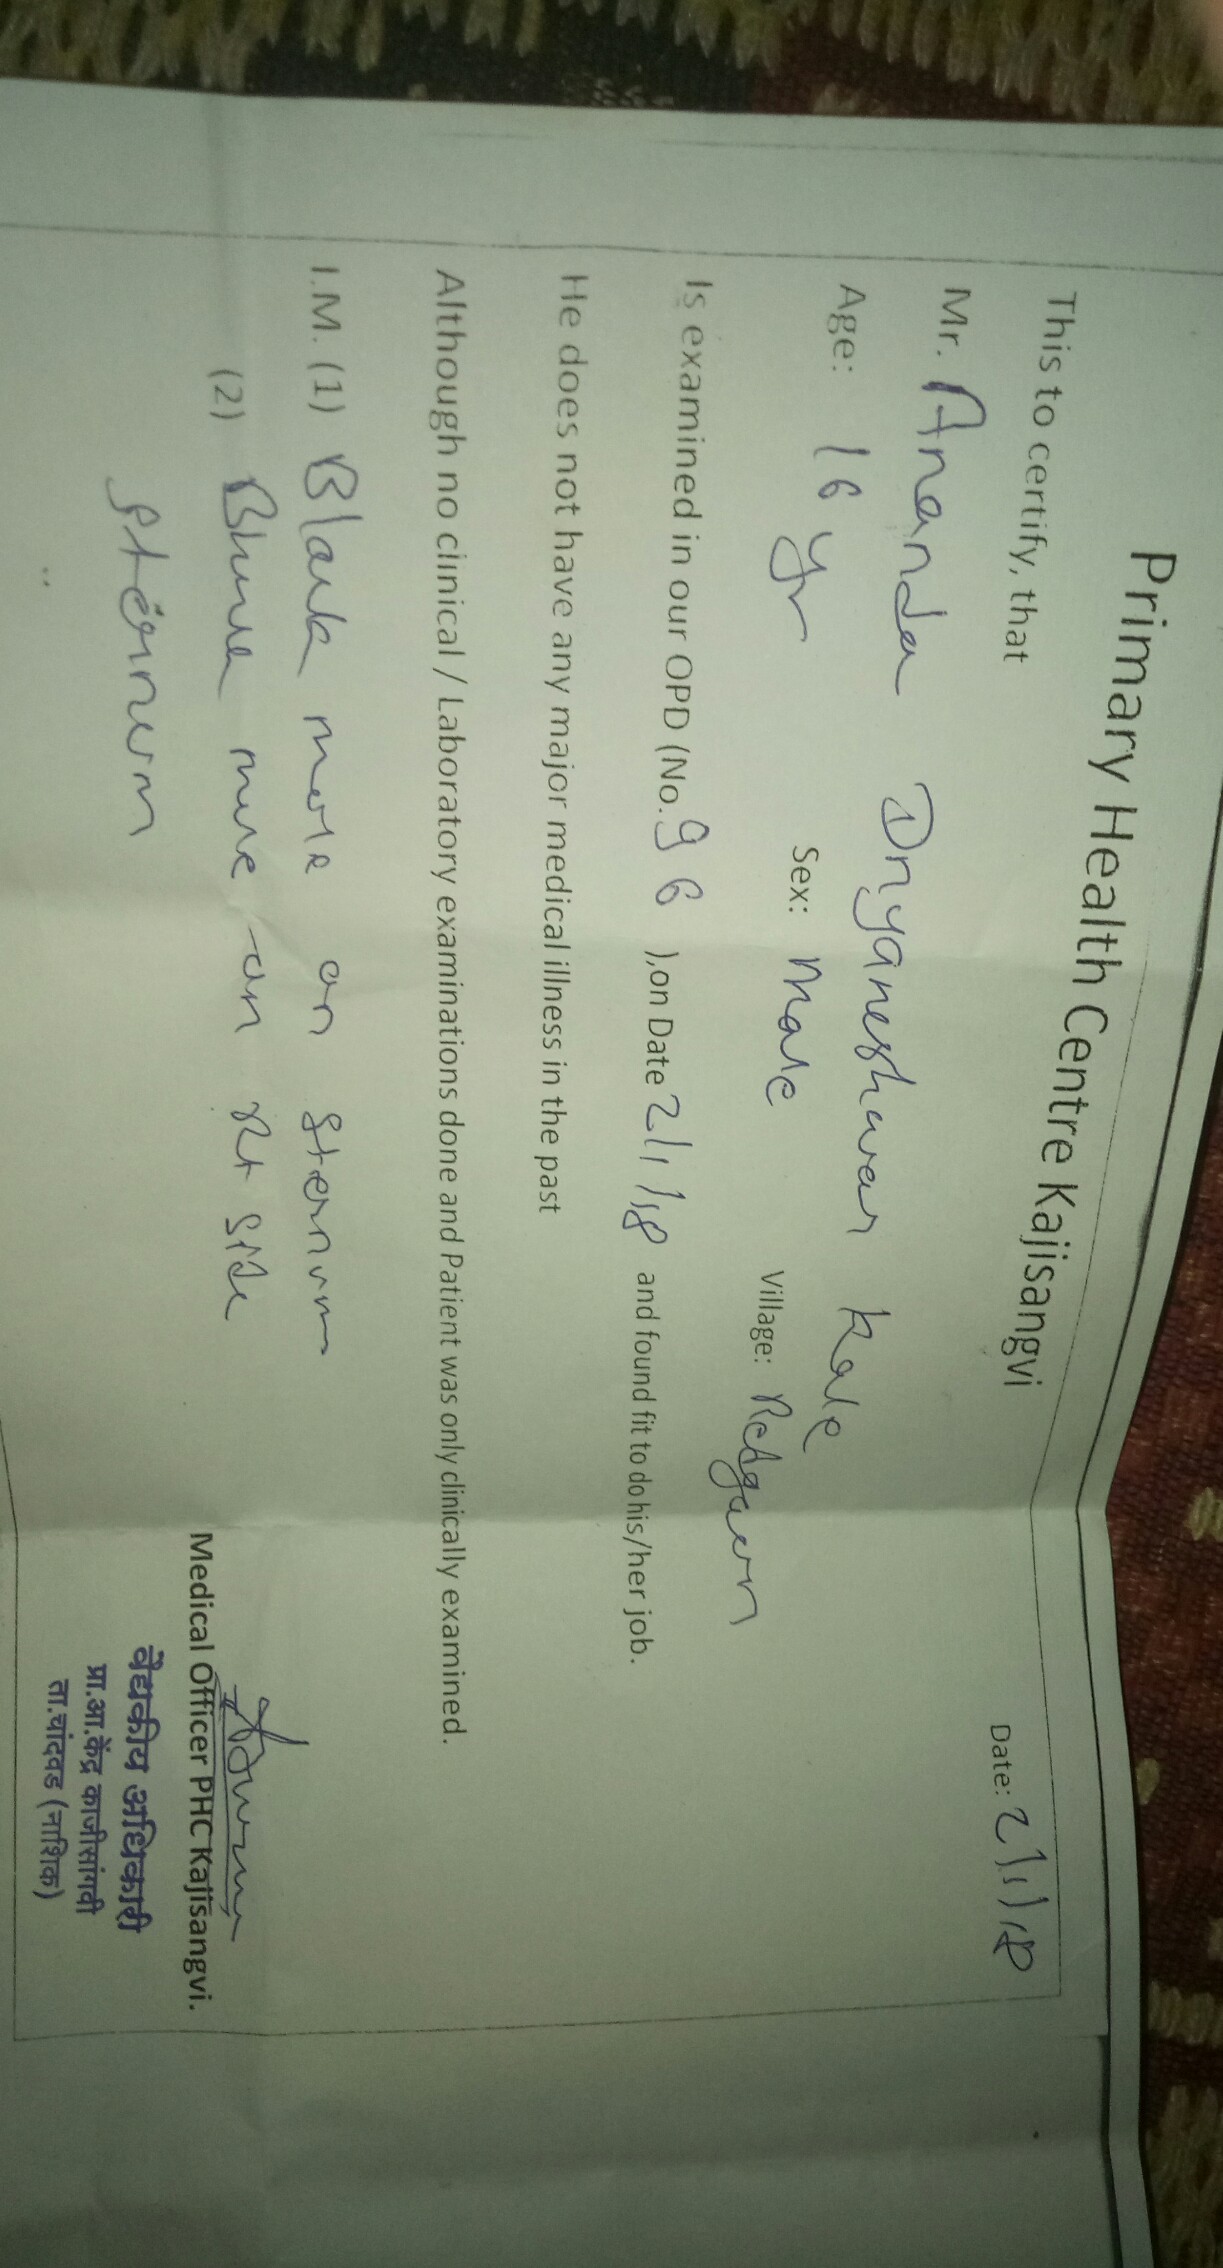 Primary Health Centre Kajisangvi
Date: 2/1/18
This to certify, that
Mr. Ananda Dnyaneshwar Kale
Age: 16 yr Sex: Male Village: Redgaon
Is examined in our OPD (No. 96 ),on Date 2/1/18 and found fit to do his/her job.
He does not have any major medical illness in the past
Although no clinical / Laboratory examinations done and Patient was only clinically examined.
I.M. (1) Black mole on sternum
(2) mole on Rt side
sternum
Medical Officer PHC Kajisangvi.
वैद्यकीय अधिकारी
प्रा.आ.केंद्र काजीसांगवी
ता.चांदवड (नाशिक)